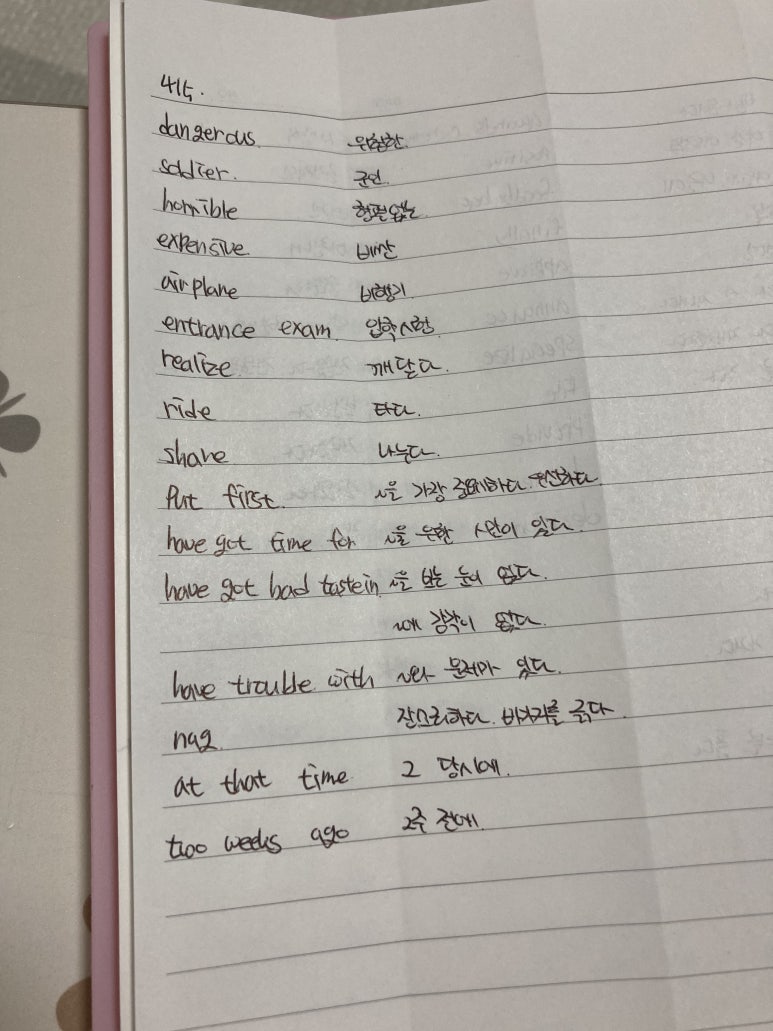 4나.
dangerous 위험한.
soldier. 군인.
horrible 형편없는
expensive 비싼
airplane 비행기
entrance exam. 입학시험.
realize. 깨닫다.
ride 타다.
share 나누다.
Put first. ~을 가장 중요시하다. 우선하다
have got time for ~을 위한 시간이 있다.
have got bad taste in ~을 보는 눈이 없다.
~에 감각이 없다.
have trouble with ~와 문제가 있다.
nag. 잔소리하다. 바가지를 긁다
at that time 그 당시에.
two weeks ago 2주 전에.